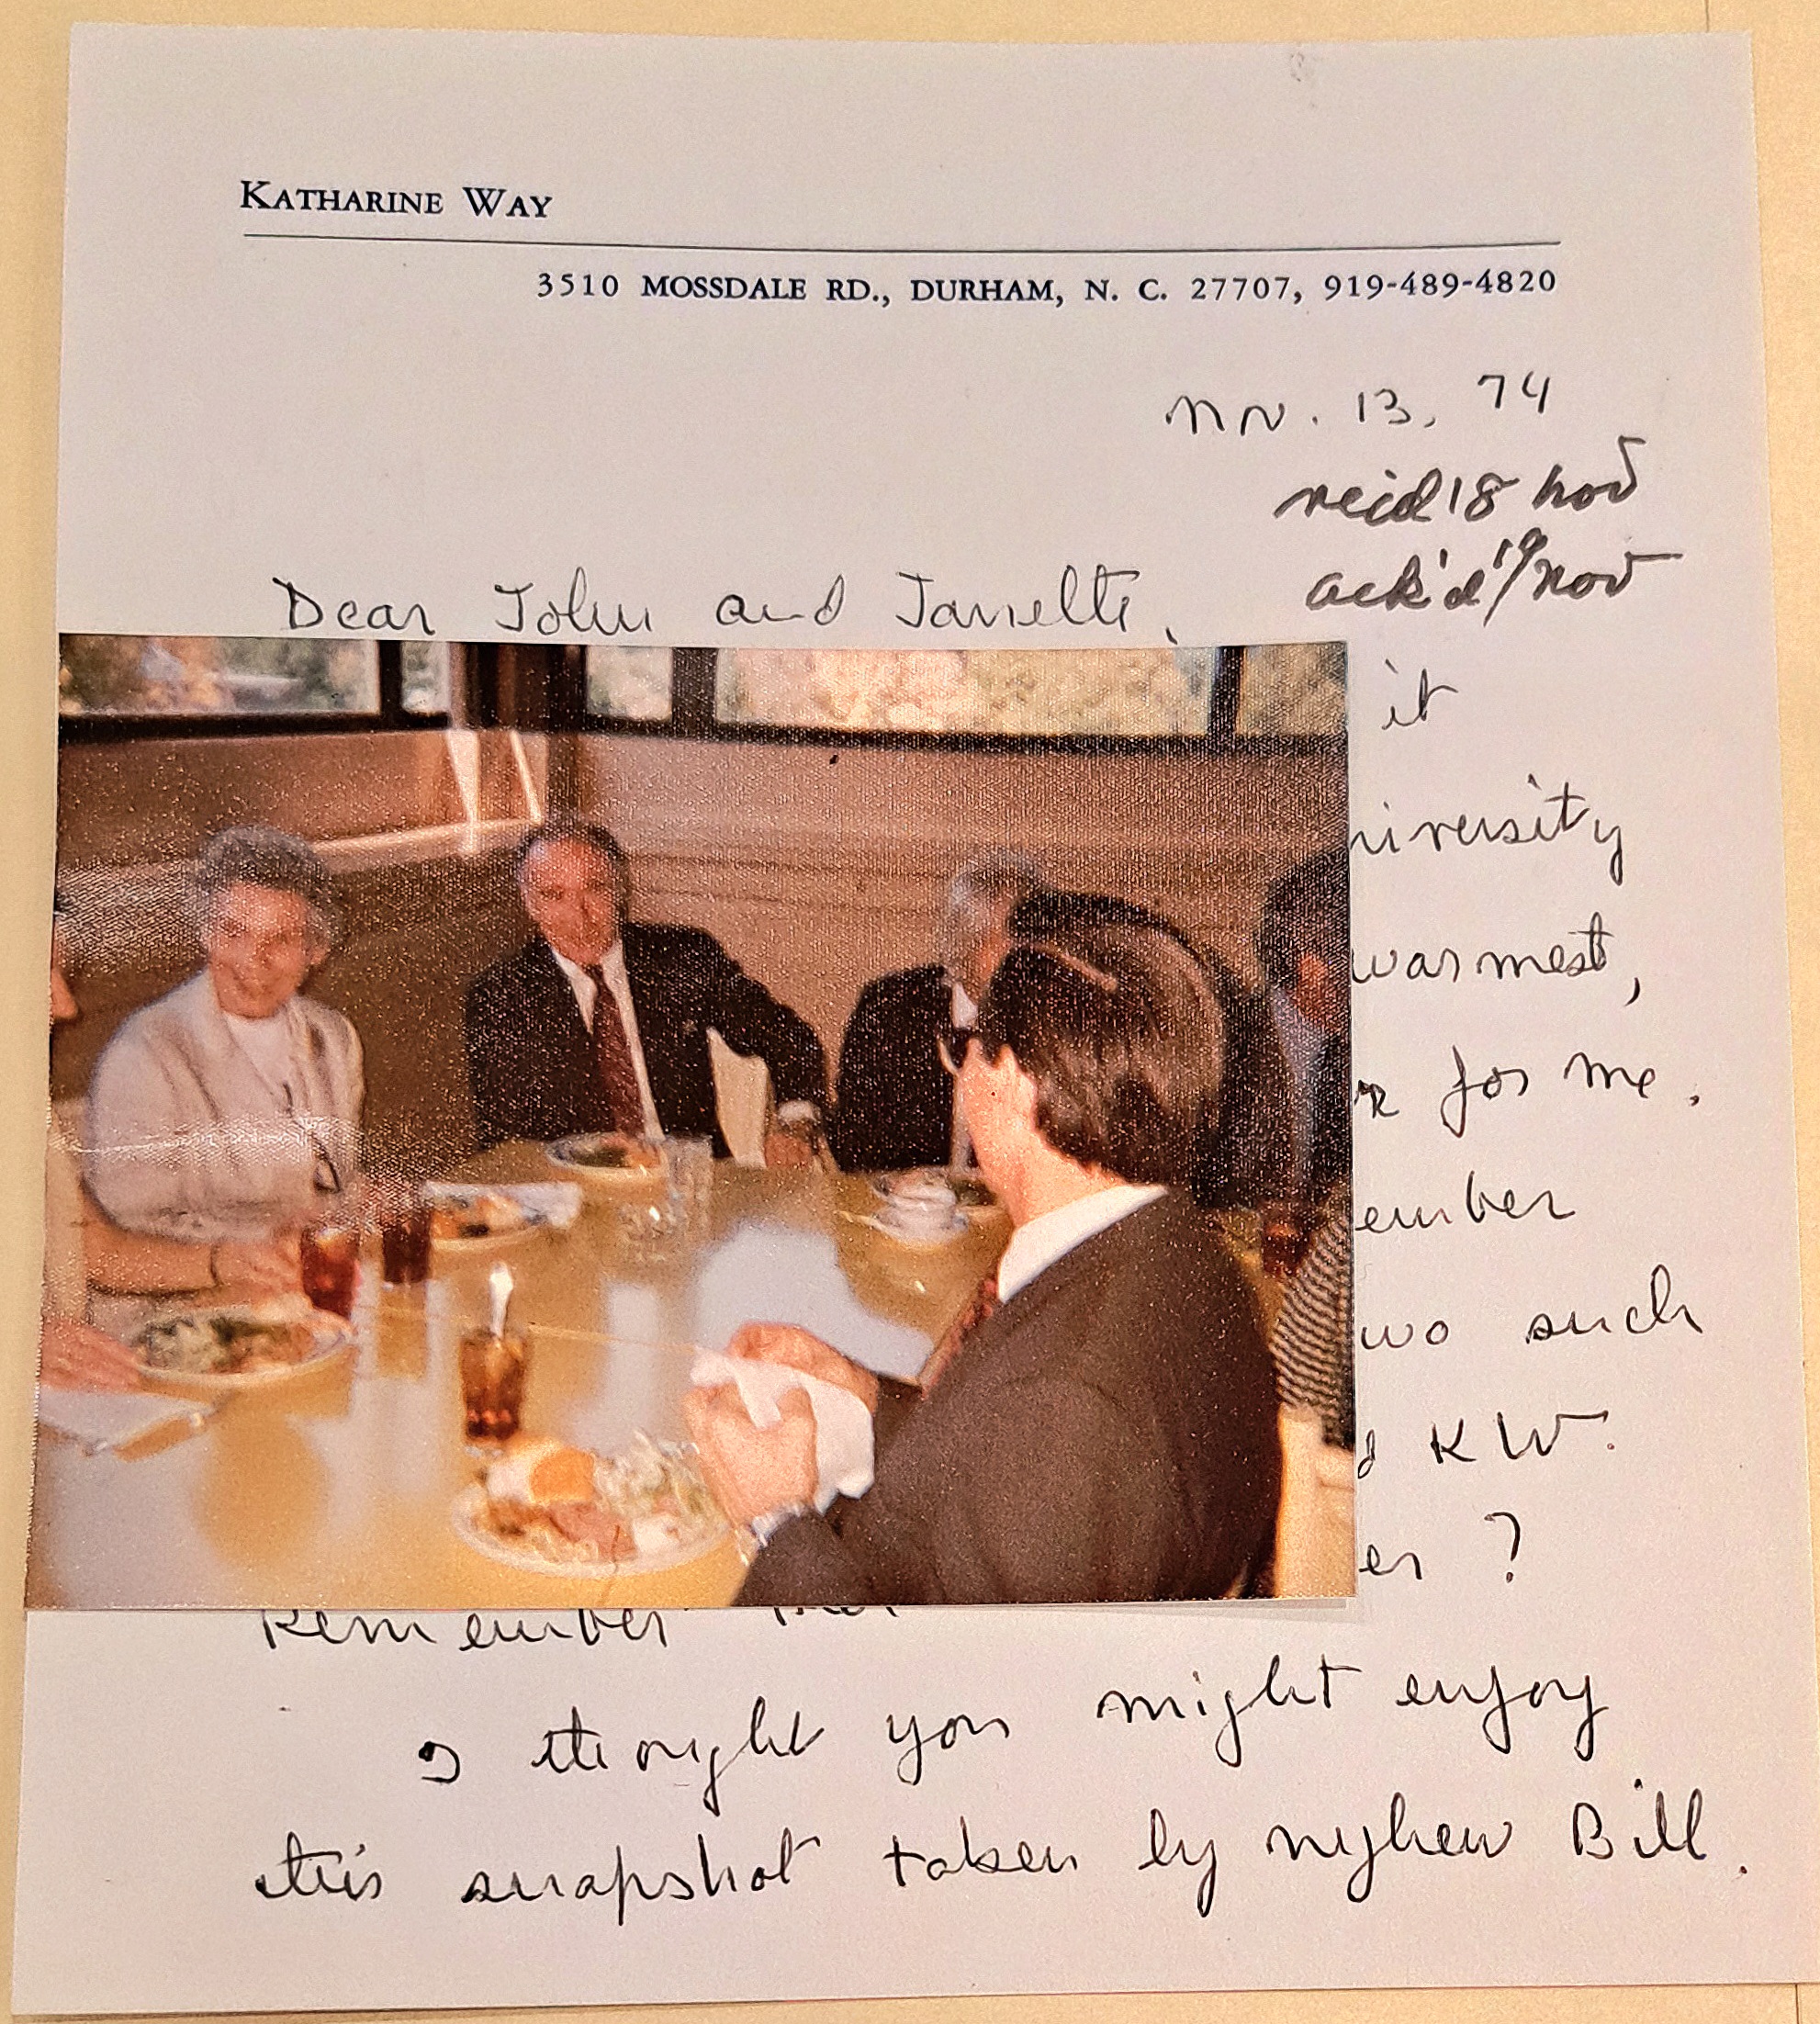 KATHARINE WAY
3510 MOSSDALE RD., DURHAM, N. C. 27707, 919-489-4820
Nov. 13, 74
rec'd 18 Nov
ack'd 19 Nov
Dear John and Janette,
it
niversity
warmest,
for me.
ember
wo such
d KW.
er ?
Remember
I thought you might enjoy
this snapshot taken by nephew Bill.